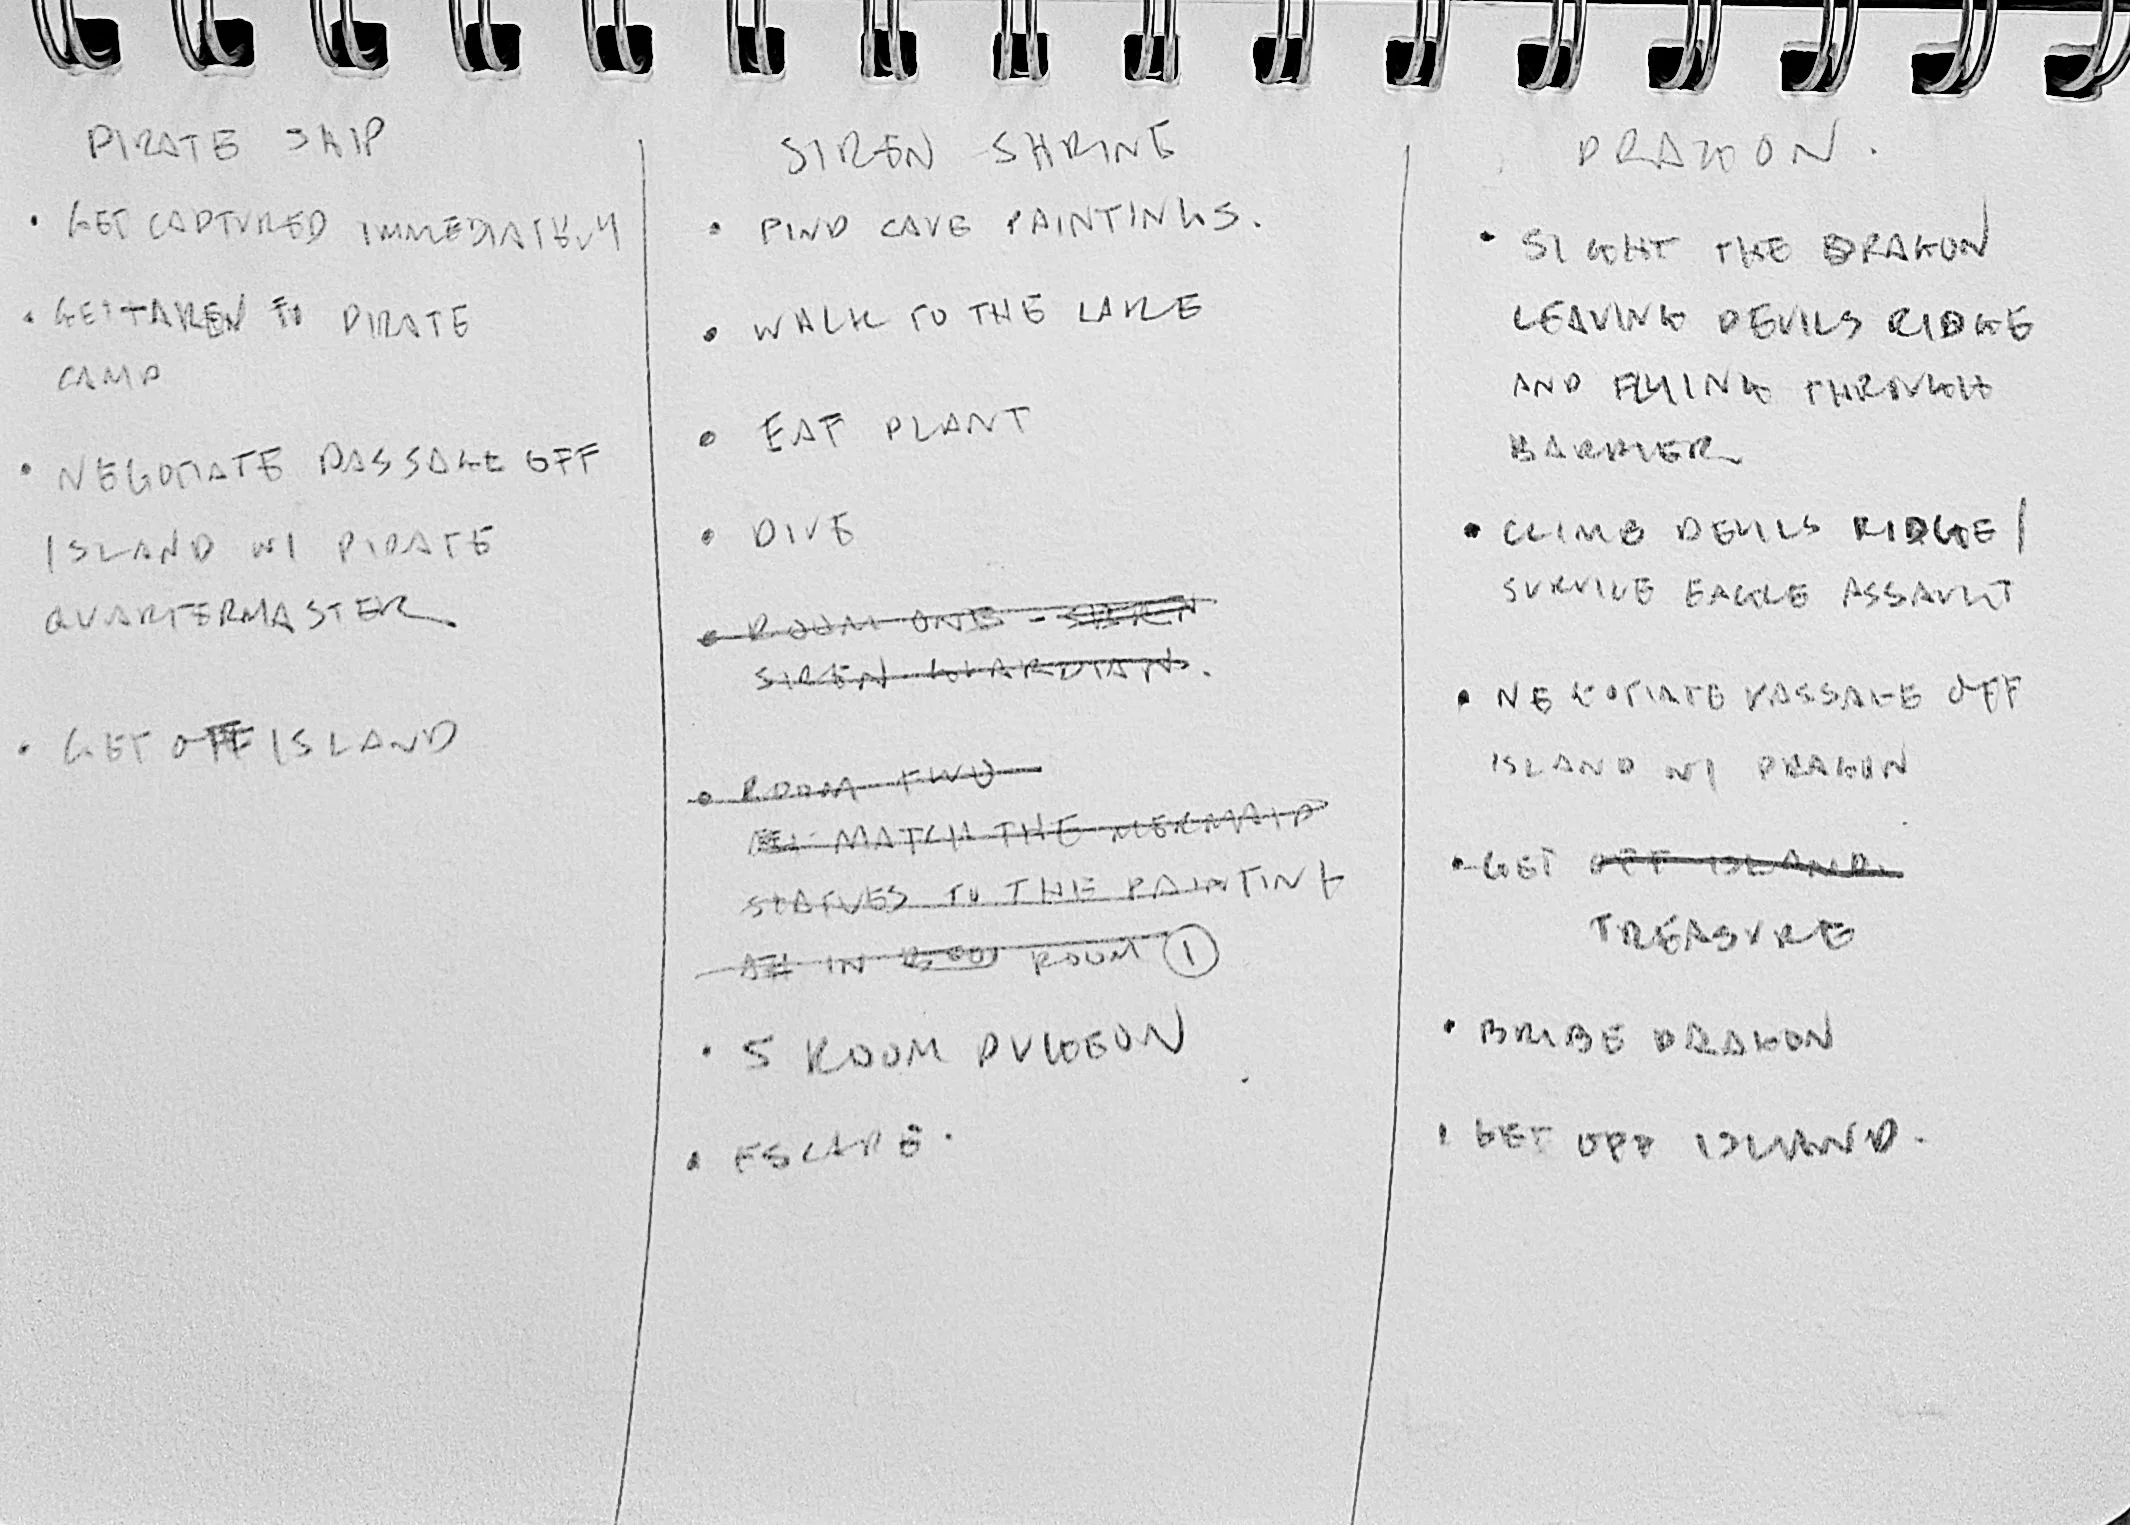 PIRATE SHIP
• GET CAPTURED IMMEDIATELY
• GET TAKEN TO PIRATE
CAMP
• NEGOTIATE PASSAGE OFF
ISLAND W/ PIRATE
QUARTERMASTER
• GET OFF ISLAND
SIREN SHRINE
• FIND CAVE PAINTINGS.
• WALK TO THE LAKE
• EAT PLANT
• DIVE
• ROOM ONE - SIREN
SIREN GUARDIAN.
• ROOM TWO
MATCH THE MERMAID
STATUES TO THE PAINTING
IN ROOM 1
• 5 ROOM DUGEON
• ESCAPE.
DRAGON.
• SIGHT THE DRAGON
LEAVING DEVILS RIDGE
AND FLYING THROUGH
BARRIER
• CLIMB DEVILS RIDGE /
SURVIVE EAGLE ASSAULT
• NEGOTIATE PASSAGE OFF
ISLAND W/ DRAGON
• GET OFF ISLAND.
TREASURE
• BRIBE DRAGON
• GET OFF ISLAND.